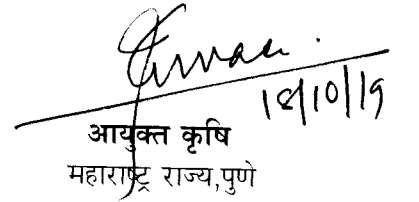 18/10/19
आयुक्त कृषि
महाराष्ट्र राज्य,पुणे